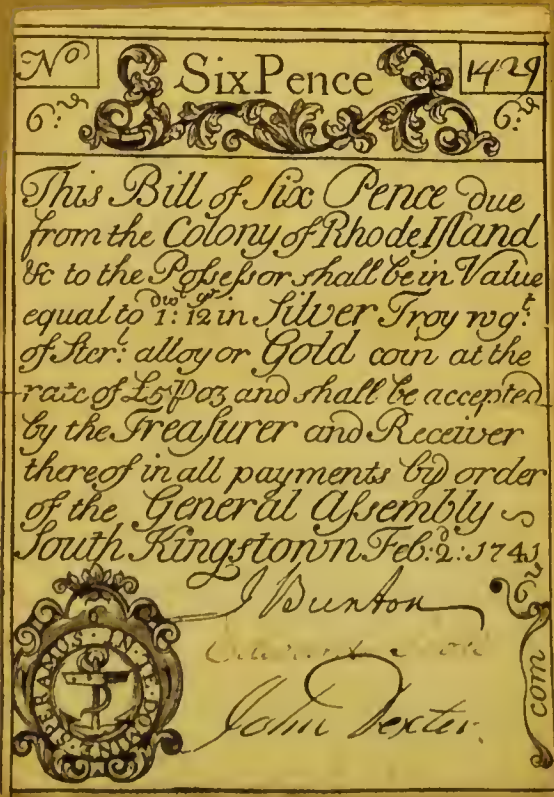 No Six Pence 1429
6:d 6:d
This Bill of Six Pence due
from the Colony of Rhode Iſland
&c to the Poſseſsor shall be in Value
equal to 1:dwt 12gr in Silver Troy wgt:
of Sterl: alloy or Gold coin at the
rate of £5 p oz and shall be accepted
by the Treaſurer and Receiver
thereof in all payments by order
of the General Aſsembly
South Kingstown Feb:2:d 1741
J Bunton
John Dexter.
IN TE DOMINE SPERAMUS
com